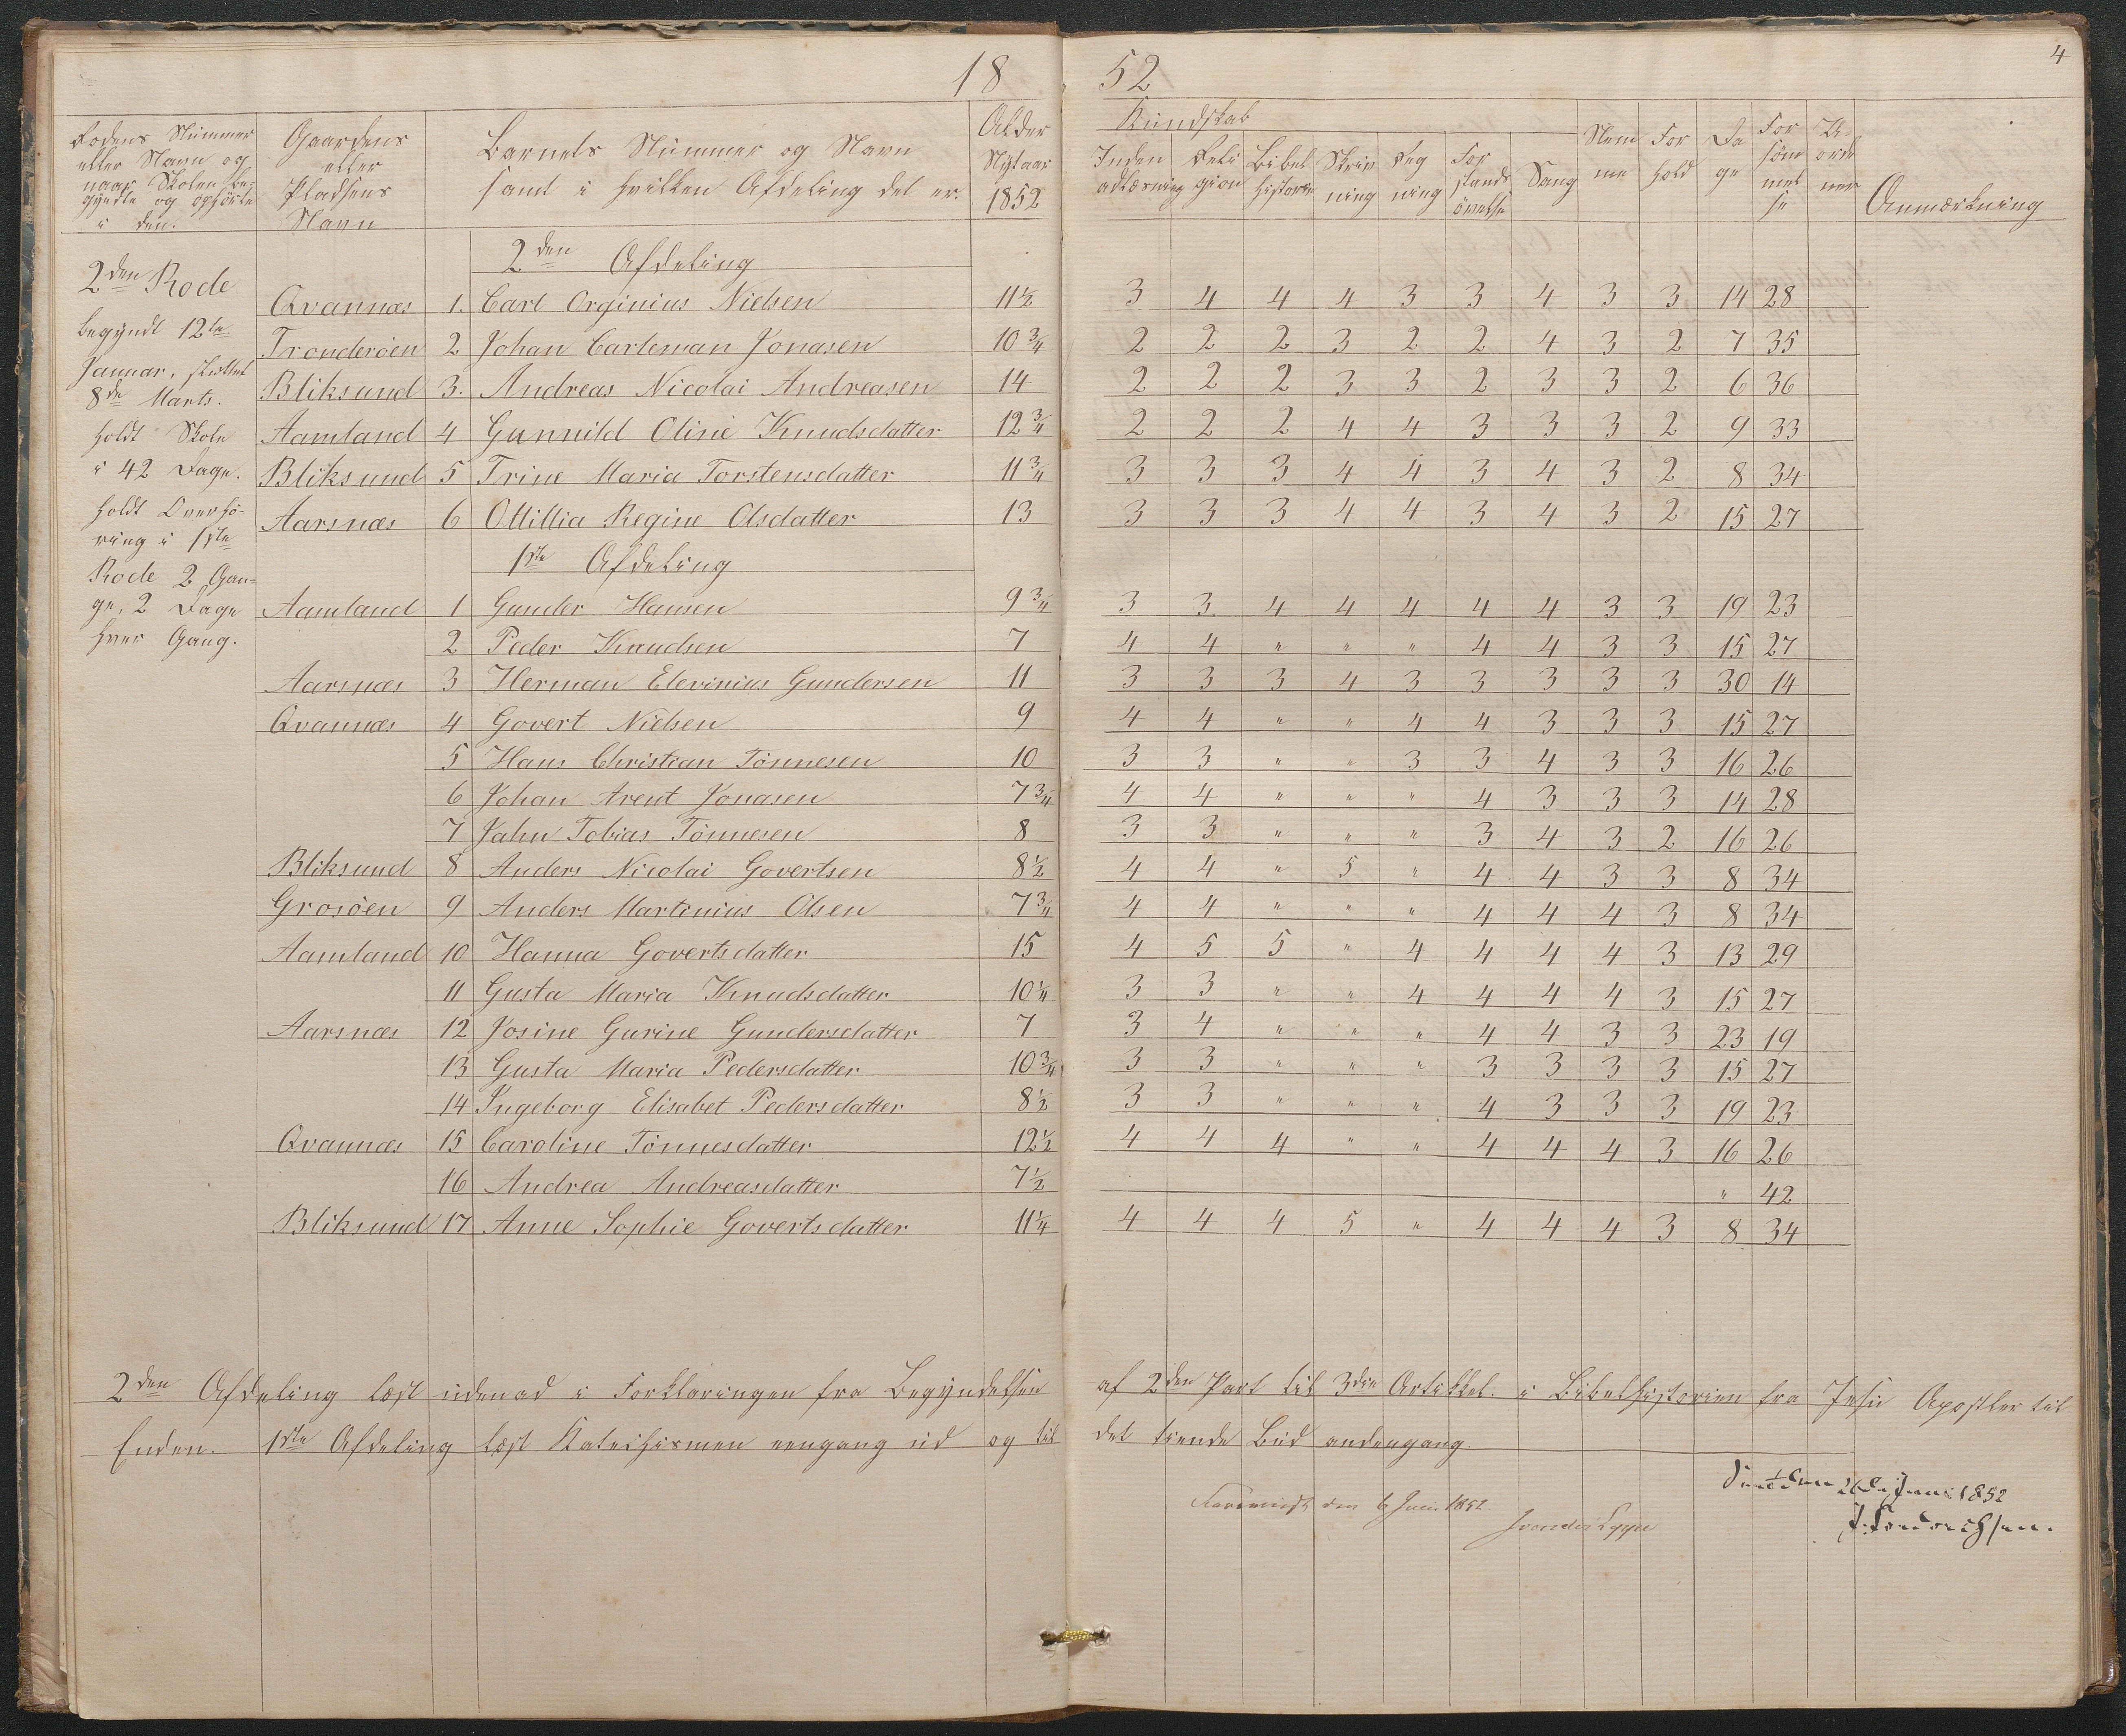 18 52
4
Rodens Nummer eller Navn og naar Skolen begyndte og ophörte i den.
Gaardens eller Pladsens Navn
Barnets Nummer og Navn samt i hvilken Afdeling det er.
Alder Nytaar 1852
Kundskab
Inden adlæsning
Reli gion
Bibel historie
Skriv ning
Reg ning
For stands övelse
Sang
Nem me
For hold
Da ge
For söm mel se
U- orde ner
Anmærkning
2den Rode
begyndt 12te
Januar, sluttet
8de Marts.
holdt Skole
i 42 Dage.
holdt Overhö-
ring i 1ste
Rode 2 Gan-
ge, 2 Dage
hver Gang.
2den Afdeling
Qvannæs 1. Carl Orginius Nielsen 11½ 3 4 4 4 3 3 4 3 3 14 28
Tronderöen 2 Johan Carleman Jonasen 10¾ 2 2 2 3 2 2 4 3 2 7 35
Bliksund 3. Andreas Nicolai Andreasen 14 2 2 2 3 3 2 3 3 2 6 36
Aamland 4 Gunnild Oline Knudsdatter 12¾ 2 2 2 4 4 3 3 3 2 9 33
Bliksund 5 Trine Maria Torstensdatter 11¾ 3 3 3 4 4 3 4 3 2 8 34
Aarsnæs 6 Ottillia Regine Olsdatter 13 3 3 3 4 4 3 4 3 2 15 27
1ste Afdeling
Aamland 1 Gunder Hansen 9¾ 3 3 4 4 4 4 4 3 3 19 23
2 Peder Knudsen 7 4 4 " " " 4 4 3 3 15 27
Aarsnæs 3 Herman Elevinius Gundersen 11 3 3 3 4 3 3 3 3 3 30 14
Qvannæs 4 Govert Nielsen 9 4 4 " " 4 4 3 3 3 15 27
5 Hans Christian Tönnesen 10 3 3 " " 3 3 4 3 3 16 26
6 Johan Arent Jonasen 7¾ 4 4 " " " 4 3 3 3 14 28
7 Jahn Tobias Tönnesen 8 3 3 " " " 3 4 3 2 16 26
Bliksund 8 Anders Nicolai Govertsen 8½ 4 4 " 5 " 4 4 3 3 8 34
Grosöen 9 Anders Martinius Olsen 7¾ 4 4 " " " 4 4 4 3 8 34
Aamland 10 Hanna Govertsdatter 15 4 5 5 " 4 4 4 4 3 13 29
11 Gusta Maria Knudsdatter 10¼ 3 3 " " 4 4 4 4 3 15 27
Aarsnæs 12 Josine Gurine Gundersdatter 7 3 4 " " " 4 4 3 3 23 19
13 Gusta Maria Pedersdatter 10¾ 3 3 " " " 3 3 3 3 15 27
14 Ingeborg Elisabet Pedersdatter 8½ 3 3 " " " 4 3 3 3 19 23
Qvannæs 15 Caroline Tönnesdatter 12½ 4 4 4 " " 4 4 4 3 16 26
16 Andrea Andreasdatter 7½ " 42
Bliksund 17 Anne Sophie Govertsdatter 11¼ 4 4 4 5 " 4 4 4 3 8 34
2den Afdeling læst udenad i Forklaringen fra Begyndelsen af 2den Part til 3die Artikkel. i Bibelhistorien fra Jesu Apostler til
Enden. 1ste Afdeling læst Katechismen eengang ud og til det tiende Bud andengang.
den 6 Juni 1852
26de Juni 1852